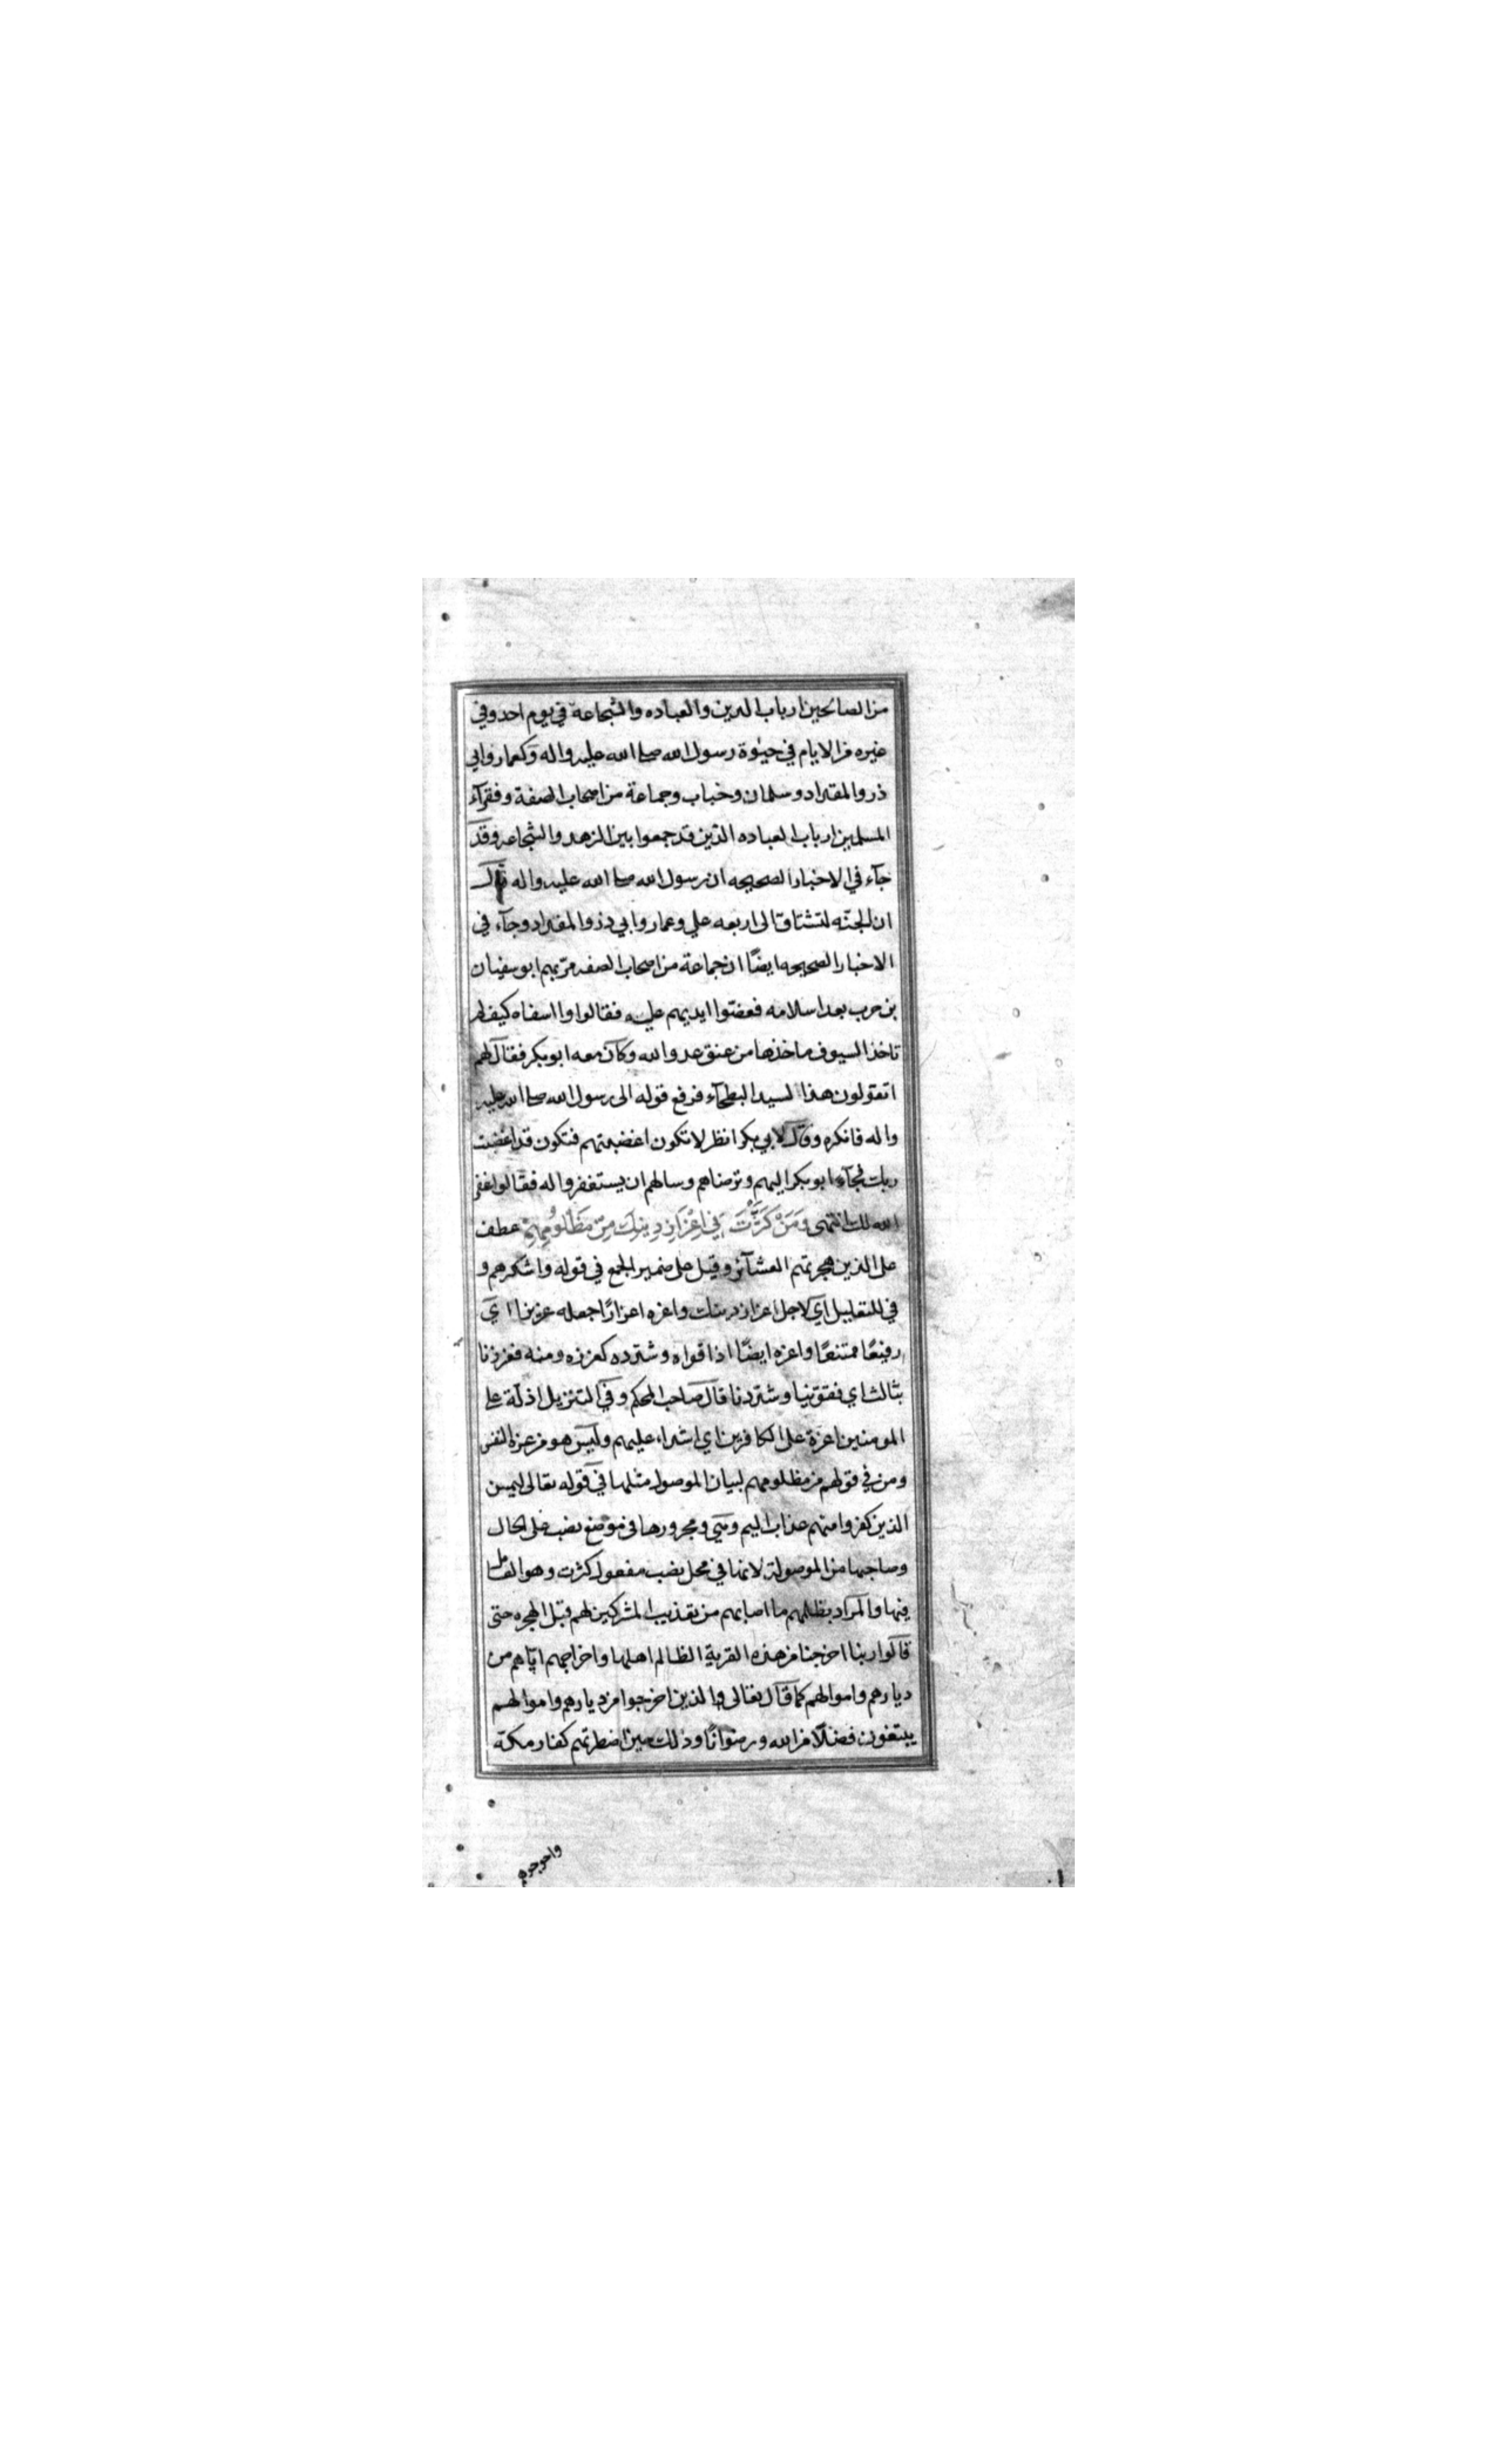 من الصالحين ارباب الدين والعباده والشجاعة في يوم احد وفي
غيره من الايام في حيوة رسول الله صلى الله عليه واله وكعمار وابي
ذر والمقداد وسلمان وخباب وجماعة من اصحاب الصفة وفقرآء
المسلمين ارباب العباده الذين قد جمعوا بين الزهد والشجاعه وقد
جآء في الاخبار الصحيحه ان رسول الله صلى الله عليه واله قال
ان الجنّه لتشتاق الى اربعه علي وعمار وابي ذر والمقداد وجآء في
الاخبار الصحيحه ايضًا ان جماعة من اصحاب الصفه مرّ بهم ابو سفيان
بن حرب بعد اسلامه فعضّوا ايديهم عليه فقالوا وا اسفاه كيف لم
تاخذ السيوف ماخذها من عنق عدو الله وكان معه ابو بكر فقال لهم
اتقولون هذا لسيد البطحآء فرفع قوله الى رسول الله صلى الله عليه
واله فانكره وقال لابي بكر انظر لا تكون اغضبتهم فتكون قد اغضبت
ربك فجآء ابو بكر اليهم وترضاهم وسالهم ان يستغفروا له فقالوا غفر
الله لك انتهى وَمَنْ كَثَّرْتَ فِي اِعْزَازِ دِينِكَ مِنْ مَظْلُومِهِمْ عطف
على الذين هجرتهم العشآئر وقيل على ضمير الجمع في قوله واشكرهم و
في للتعليل اي لاجل اعزاز دينك واعزه اعزازًا جعله عزيزا اي
رفيعًا ممتنعًا واعزه ايضًا اذا قواه وشدده كعززه ومنه فعززنا
بثالث اي فقوّينا وشددنا قال صاحب المحكم وفي التنزيل اذلة على
المومنين اعزة على الكافرين اي اشداء عليهم وليس هو من عزة النفس
ومن في قولهم من مظلومهم لبيان الموصول مثلها في قوله تعالى ليمسن
الذين كفروا منهم عذاب اليم وهي ومجرورها في موضع نصب على الحال
وصاحبها من الموصولة لانها في محل نصب مفعول كثرت وهو العامل
فيها والمراد بظلمهم ما اصابهم من تعذيب المشركين لهم قبل الهجره حتى
قالوا ربنا اخرجنا من هذه القرية الظالم اهلها واخراجهم اياهم من
ديارهم واموالهم كما قال تعالى والذين اخرجوا من ديارهم واموالهم
يبتغون فضلًا من الله ورضوانًا وذلك حين اضطرتهم كفار مكة
واحوجوهم